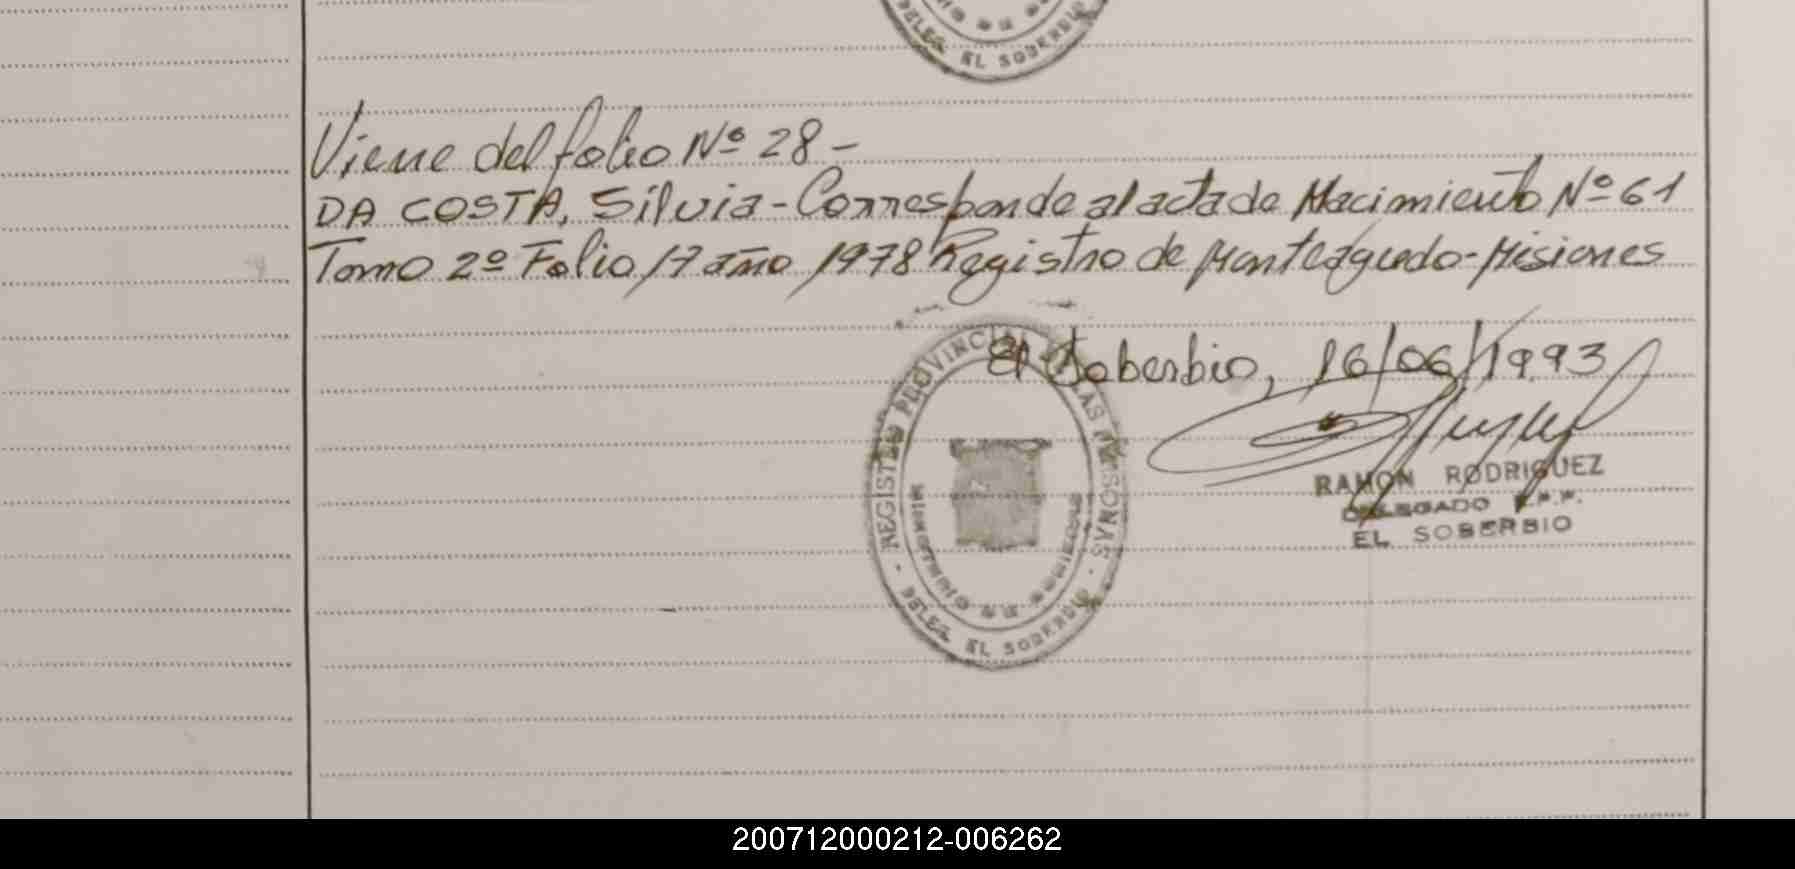 DELEG. EL SOBERBIO
Viene del folio Nº 28 -
DA COSTA, Silvia - Corresponde al acta de Nacimiento Nº 61
Tomo 2º Folio 17 año 1978 Registro de Monteagudo - Misiones
El Soberbio, 16/06/1993
REGISTRO PROVINCIAL LAS PERSONAS
MISIONES
DELEG. EL SOBERBIO
RAMON RODRIGUEZ
DELEGADO R.P.P.
EL SOBERBIO
200712000212-006262